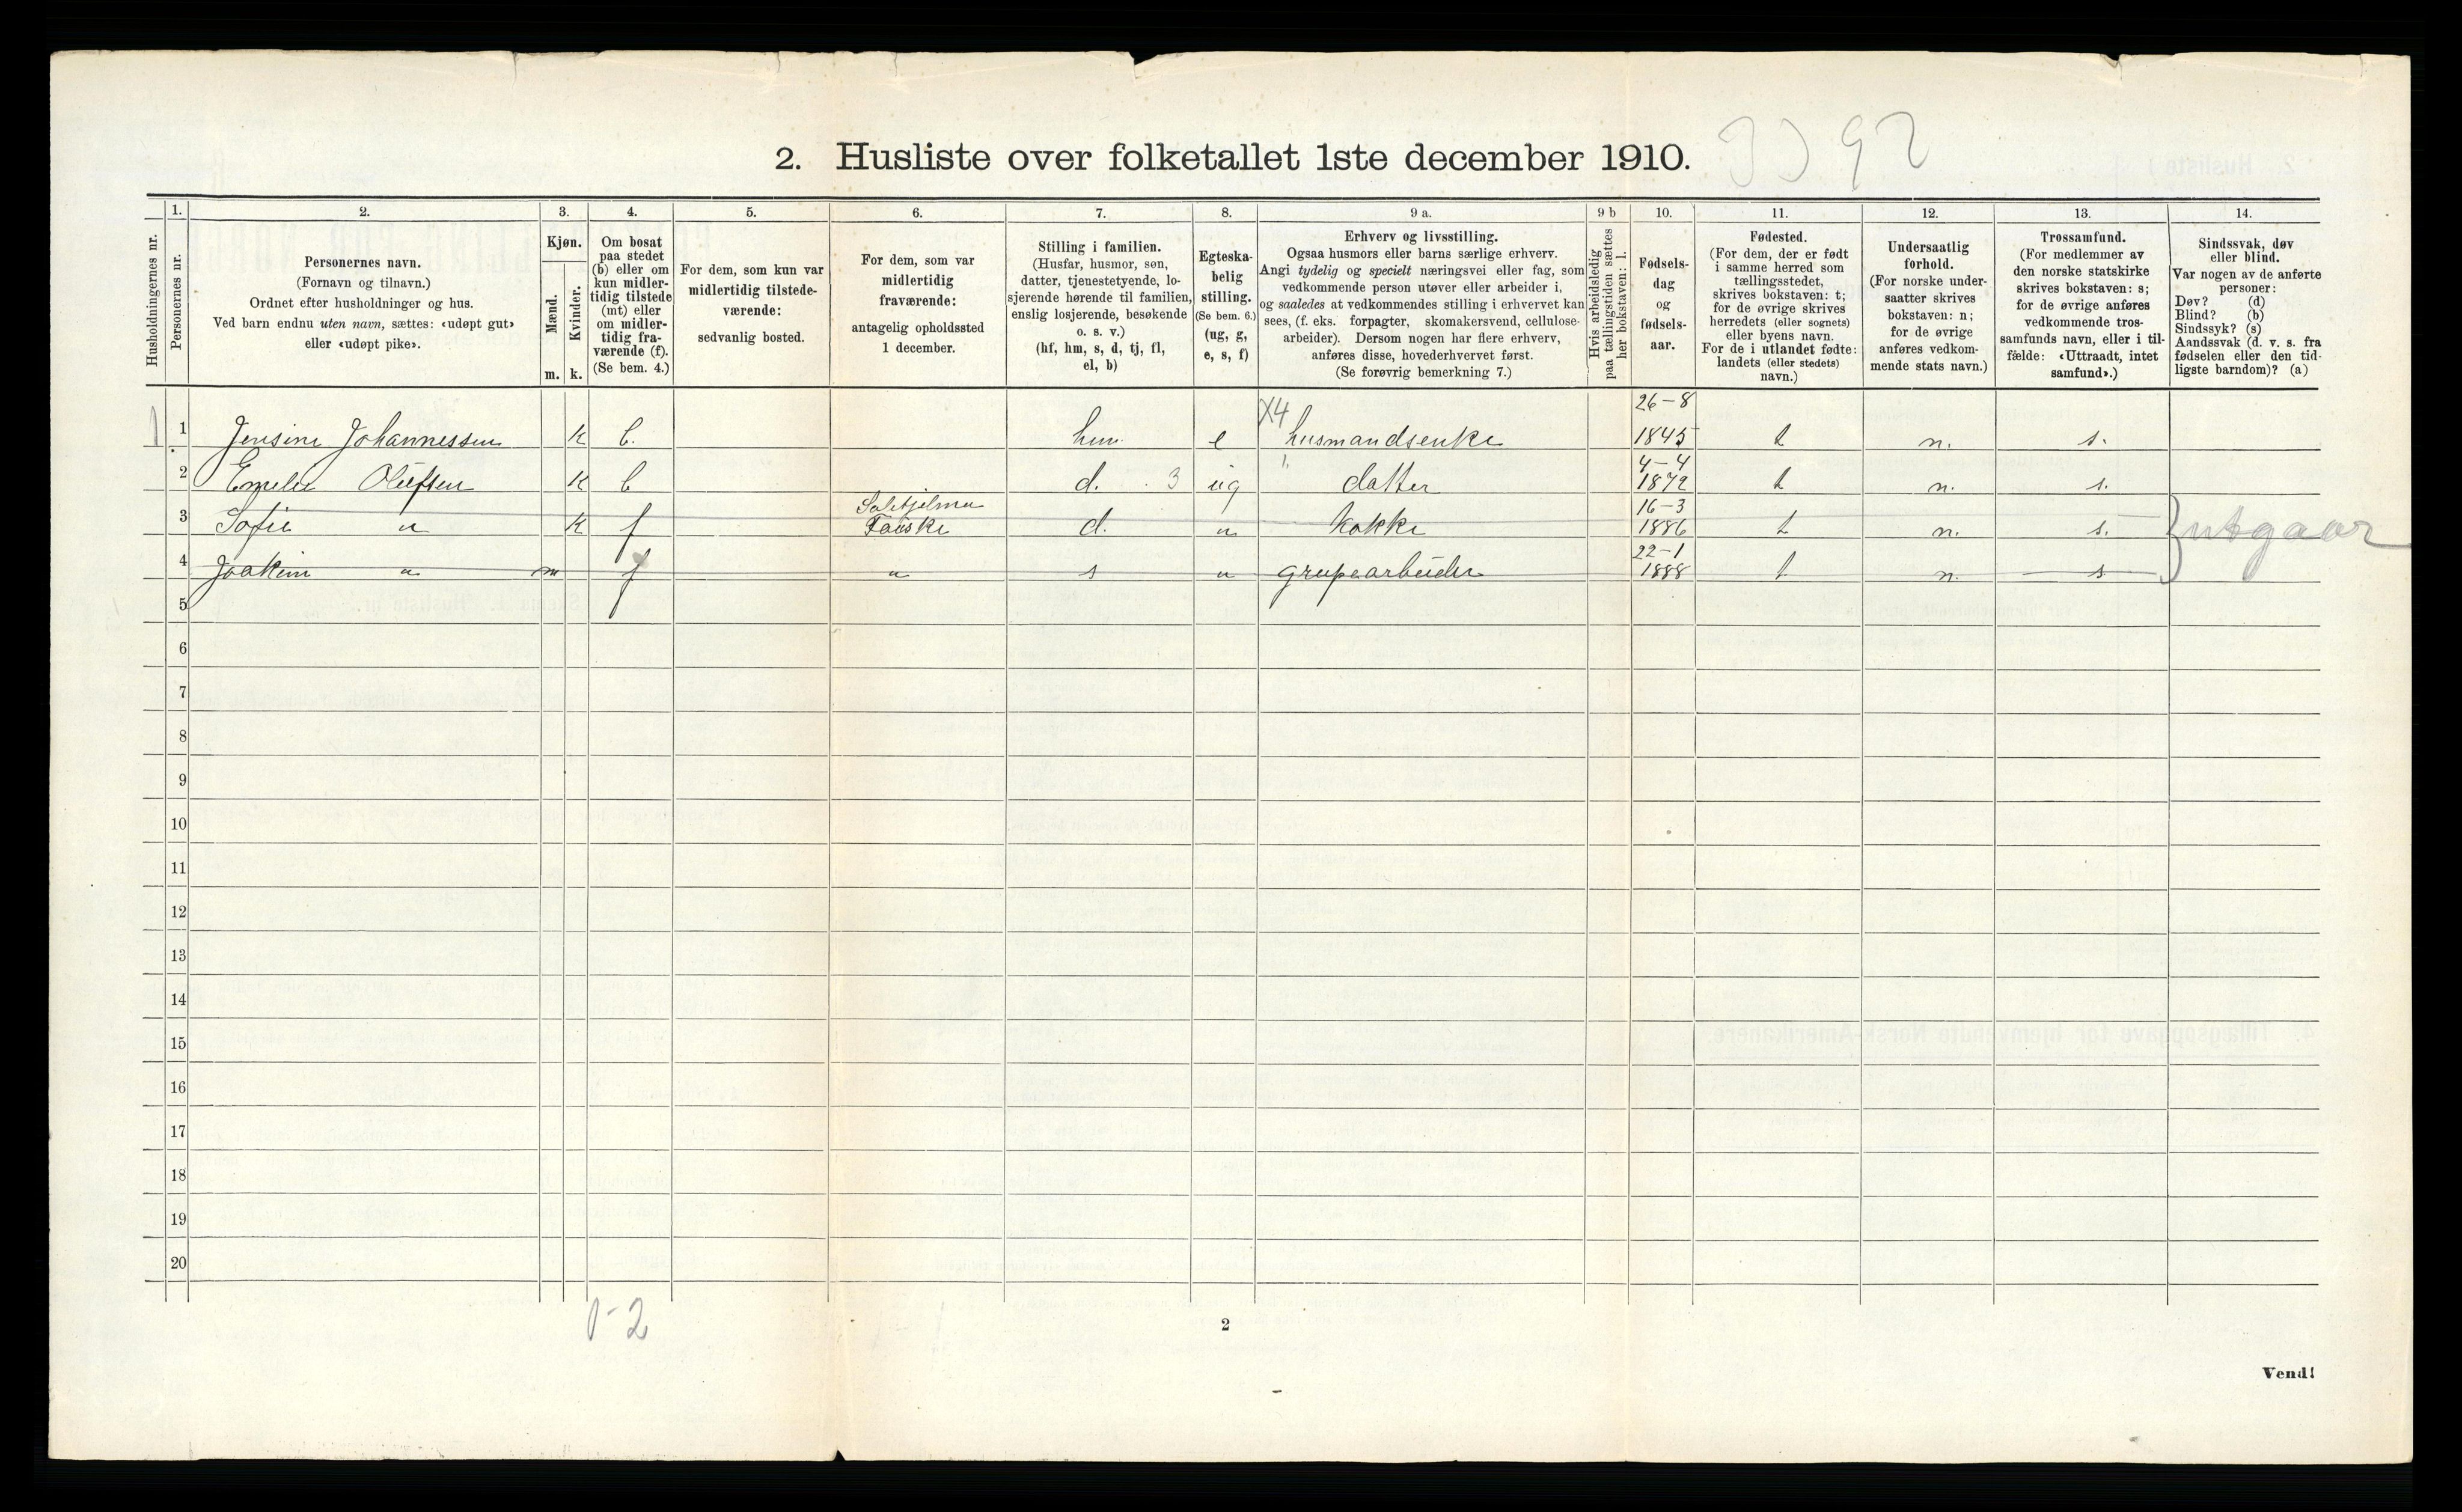 2. Husliste over folketallet 1ste december 1910.
Husholdningernes nr.
1.
Personernes nr.
2.
Personernes navn.
(Fornavn og tilnavn.)
Ordnet efter husholdninger og hus.
Ved barn endnu uten navn, sættes: «udøpt gut»
eller «udøpt pike».
3.
Kjøn.
Mænd.
Kvinder.
m. k.
4.
Om bosat
paa stedet
(b) eller om
kun midler-
tidig tilstede
(mt) eller
om midler-
tidig fra-
værende (f).
(Se bem. 4.)
5.
For dem, som kun var
midlertidig tilstede-
værende:
sedvanlig bosted.
6.
For dem, som var
midlertidig
fraværende:
antagelig opholdssted
1 december.
7.
Stilling i familien.
(Husfar, husmor, søn,
datter, tjenestetyende, lo-
sjerende hørende til familien,
enslig losjerende, besøkende
o. s. v.)
(hf, hm, s, d, tj, fl,
el, b)
8.
Egteska-
belig
stilling.
(Se bem. 6.)
(ug, g,
e, s, f)
9 a.
Erhverv og livsstilling.
Ogsaa husmors eller barns særlige erhverv.
Angi tydelig og specielt næringsvei eller fag, som
vedkommende person utøver eller arbeider i,
og saaledes at vedkommendes stilling i erhvervet kan
sees, (f. eks. forpagter, skomakersvend, cellulose-
arbeider). Dersom nogen har flere erhverv,
anføres disse, hovederhvervet først.
(Se forøvrig bemerkning 7.)
9 b
Hvis arbeidsledig
paa tællingstiden sættes
her bokstaven: l.
10.
Fødsels-
dag
og
fødsels-
aar.
11.
Fødested.
(For dem, der er født
i samme herred som
tællingsstedet,
skrives bokstaven: t;
for de øvrige skrives
herredets (eller sognets)
eller byens navn.
For de i utlandet fødte:
landets (eller stedets)
navn.)
12.
Undersaatlig
forhold.
(For norske under-
saatter skrives
bokstaven: n;
for de øvrige
anføres vedkom-
mende stats navn.)
13.
Trossamfund.
(For medlemmer av
den norske statskirke
skrives bokstaven: s;
for de øvrige anføres
vedkommende tros-
samfunds navn, eller i til-
fælde: «Uttraadt, intet
samfund».)
14.
Sindssvak, døv
eller blind.
Var nogen av de anførte
personer:
Døv? (d)
Blind? (b)
Sindssyk? (s)
Aandssvak (d. v. s. fra
fødselen eller den tid-
ligste barndom)? (a)
X4 26-8
1 1 Jensine Johannessen k b. hm. e husmandsenke 1845 t n. s.
4-4
2 Emelie Olufsen k b d. 3 ug " datter 1872 t n. s.
Sulitjelma 16-3
3 Sofie " k f Fauske d. " kokke 1886 t n. s. utgaar
22-1
4 Joakim " m f " s " grubearbeider 1888 t n. s
5
6
7
8
9
10
11
12
13
14
15
16
17
18
19
20
0-2
2
Vend!